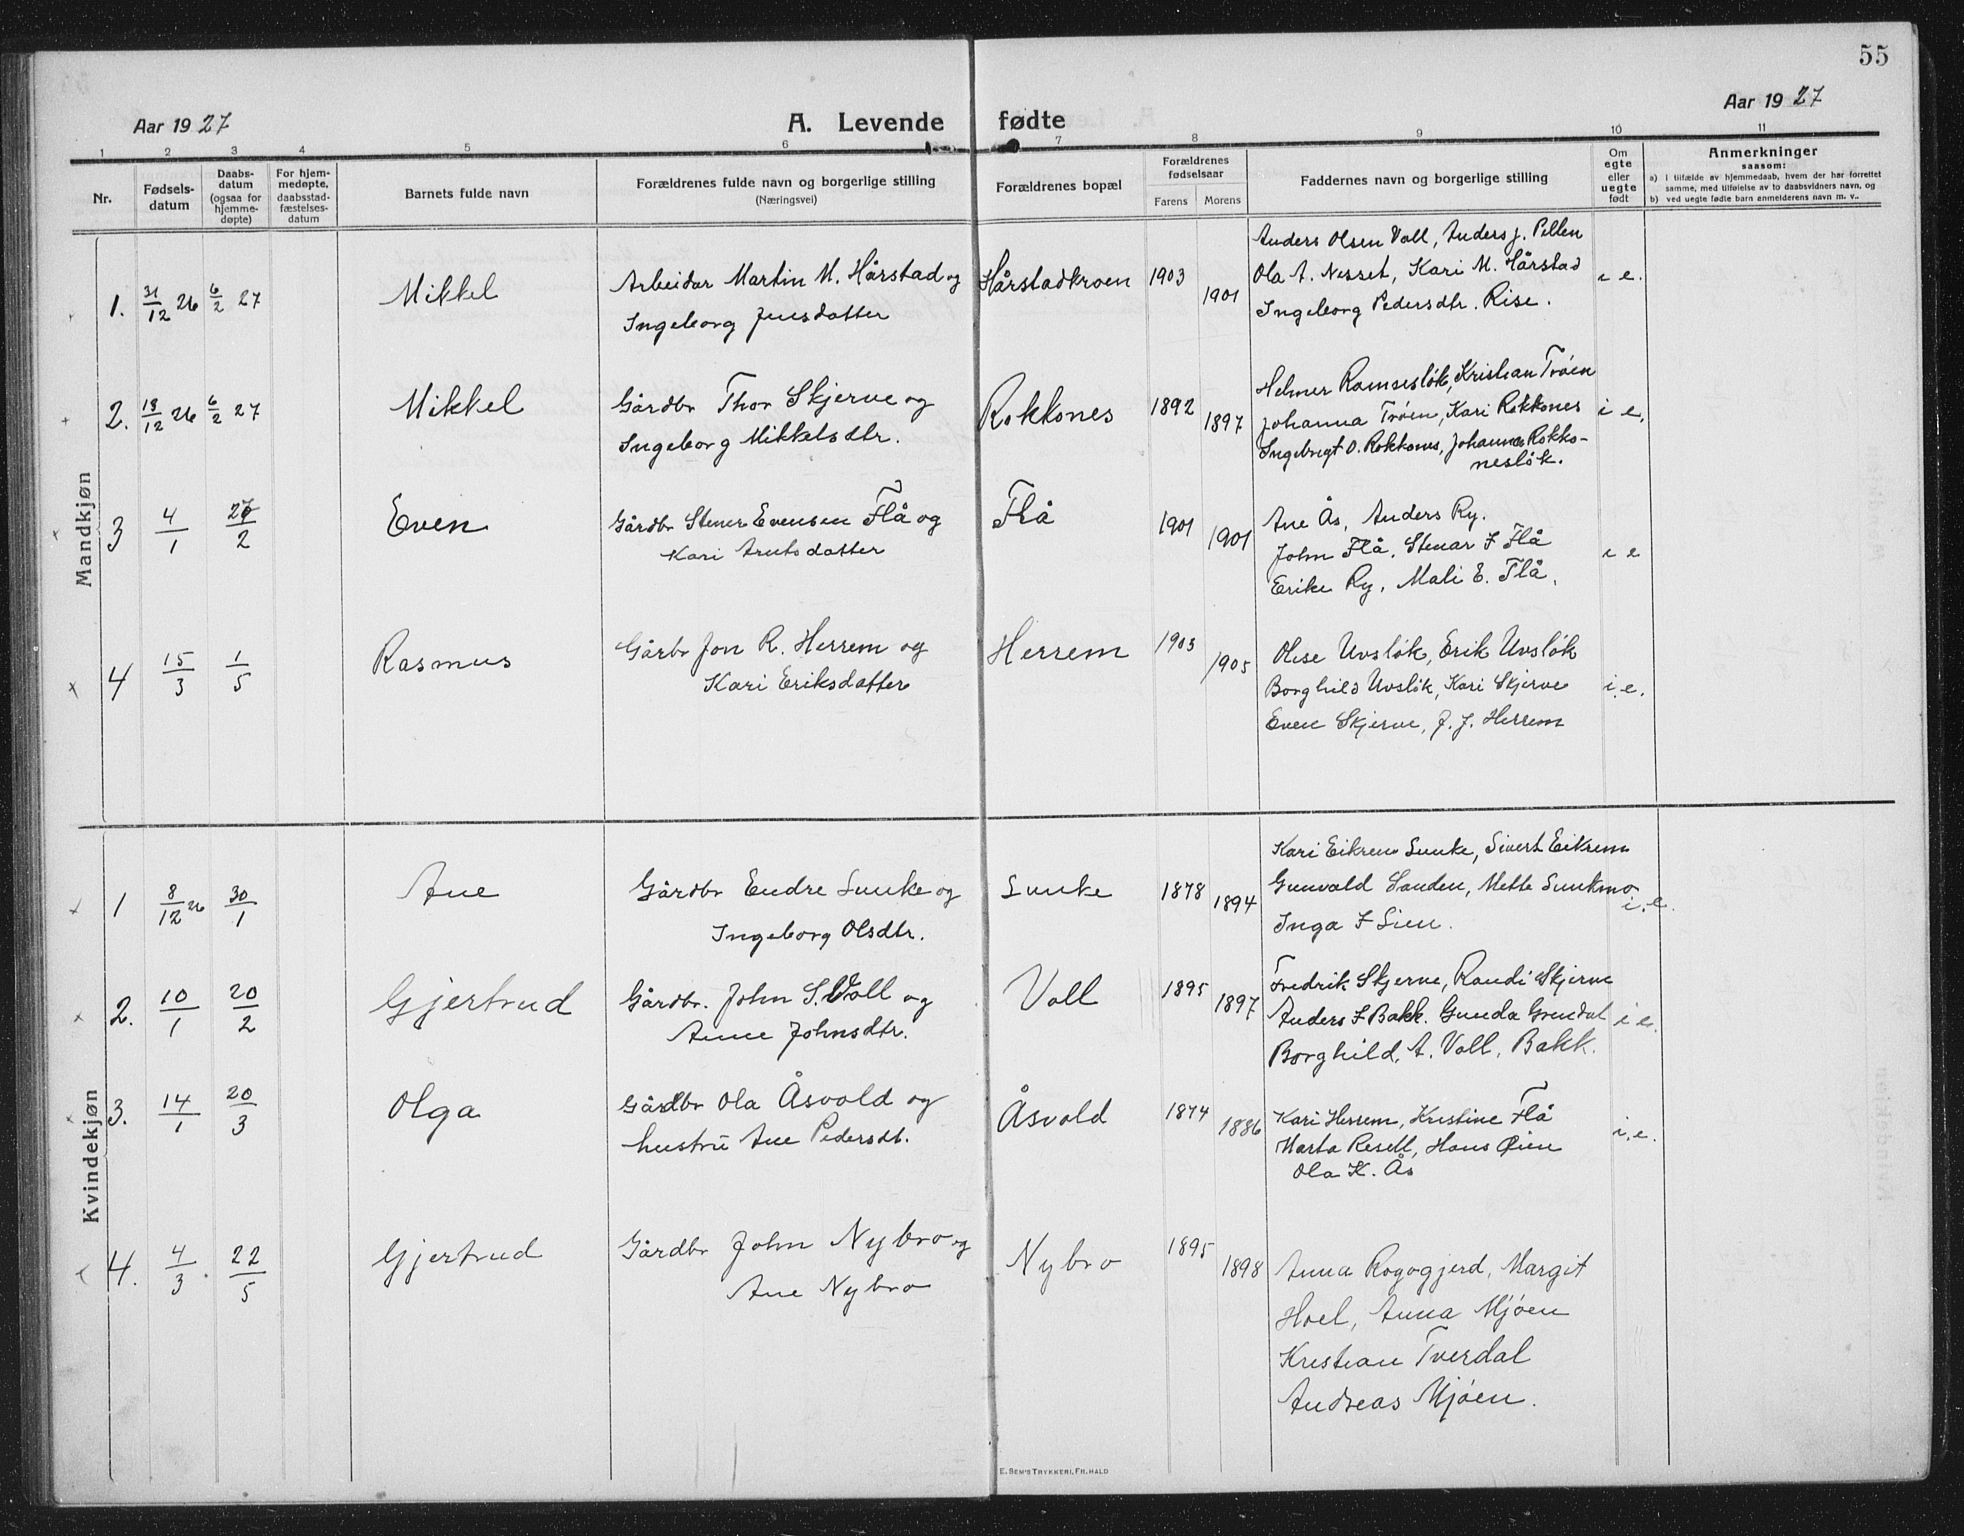 55
Aar 1927
A. Levende fødte
Aar 1927
1 2 3 4 5 6 7 8 9 10 11
Nr.
Fødsels-
datum
Daabs-
datum
(ogsaa for
hjemme-
døpte)
For hjem-
medøpte,
daabsstad-
fæstelses-
datum
Barnets fulde navn
Forældrenes fulde navn og borgerlige stilling
(Næringsvei)
Forældrenes bopæl
Forældrenes
fødselsaar
Farens Morens
Faddernes navn og borgerlige stilling
Om
egte
eller
uegte
født
Anmerkninger
saasom:
a) i tilfælde av hjemmedaab, hvem der har forrettet
samme, med tilføielse av to daabsvidners navn, og
b) ved uegte fødte barn anmelderens navn m. v..
Mandkjøn
1. 31/12 26 6/2 27 Mikkel
Arbeider Martin M. Hårstad og
Ingeborg Jensdatter
Hårstadkroen 1903 1901
Anders Olsen Voll, Anders J. Pellen
Ola A. Nesset, Kari M. Hårstad
Ingeborg Pedersdtr. Rise.
i e.
2. 19/12 26 6/2 27 Mikkel
Gårdbr Thor Skjerve og
Ingeborg Mikkelsdtr.
Rokkones 1892 1897
Helmer Ramsesløk, Kristian Trøen
Johanna Trøen, Kari Rokkones
Ingebrigt O. Rokkones, Johannes Rokko-
nesløk.
i e.
3 4/1 27/2 Even
Gårdbr Stener Evensen Flå og
Kari Arntsdatter
Flå 1901 1901
Ane Ås, Anders Ry.
John Flå, Stenar F Flå
Erike Ry, Mali E. Flå.
i e
4 15/3 1/5 Rasmus
Gårbr Jon R. Herrem og
Kari Eriksdatter
Herrem 1903 1905
Olise Uvsløk, Erik Uvsløk
Borghild Uvsløk, Kari Skjerve
Even Skjerve, J. J. Herrem
i.e.
Kvindekjøn
1 8/12 26 30/1 Ane
Gårdbr Endre Lunke og
Ingeborg Olsdtr.
Lunke 1878 1894
Kari Eikrem Lunke, Sivert Eikrem
Gunvald Sanden, Mette Lunkmo
Inga F Lien.
i.e.
2. 10/1 20/2 Gjertrud
Gårdbr. John S. Voll og
Anne Johnsdtr.
Voll 1895 1897
Fredrik Skjerve, Randi Skjerve
Anders F Bakk. Gunda Grindal
Borghild, A. Voll, Bakk.
i e.
3. 14/1 20/3 Olga
Gårdbr Ola Åsvold og
hustru Ane Pedersdt.
Åsvold 1874 1886
Kari Herrem, Kristine Flå
Marta Resell, Hans Øien
Ola K. Ås
i.e.
4. 4/3. 22/5 Gjertrud
Gårdbr John Nybro og
Ane Nybro
Nybro 1895 1898
Anna Rogogjerd, Margit
Hoel, Anna Mjøen
Kristian Tverdal
Andreas Mjøen.
E. SEM'S TRYKKERI, FR.HALD